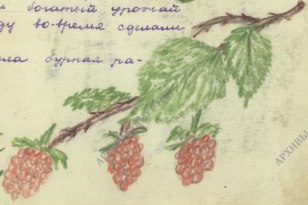 и богатый урожай
ду во-время сделали
ла бурная ра-
АРХИВЫ
АРХИВЫ